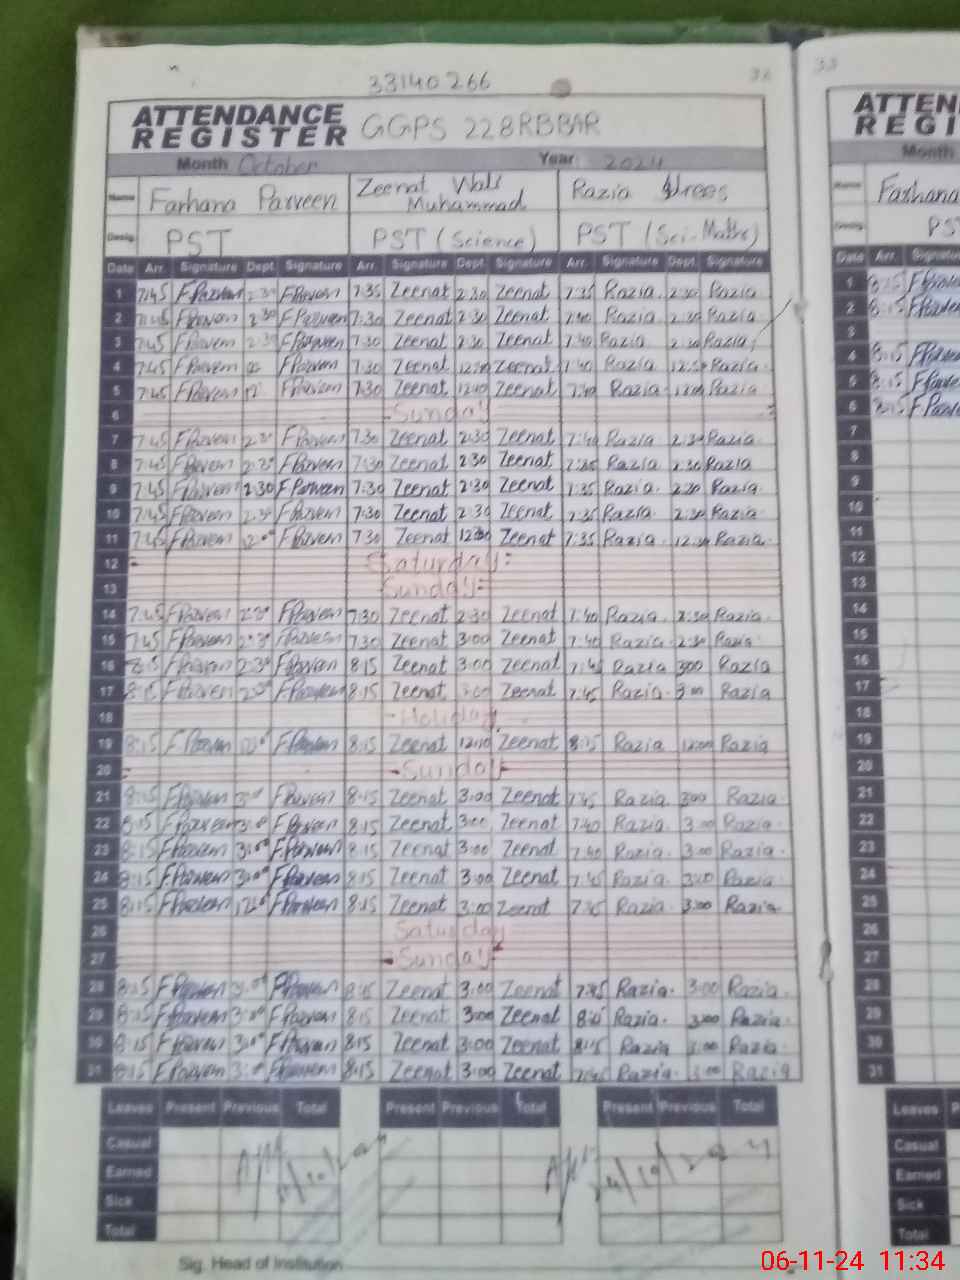 33140266
32
33
ATTENDANCE
REGISTER GGPS 228RBBAR
ATTEN
REGI
Month October Year 2024
Month
Name Farhana Parveen Zeenat Wali Muhammad Razia
Name Farhana
Desig. PST PST (Science) PST (Sci-Maths)
Desig. PST
Date Arr. Signature Dept. Signature Arr. Signature Dept. Signature Arr. Signature Dept. Signature
Date Arr. Signatu
1 7:45 FParveen 2:30 FParveen 7:35 Zeenat 2:30 Zeenat 7:35 Razia 2:30 Razia
2 7:45 FParveen 2:30 FParveen 7:30 Zeenat 2:30 Zeenat 7:40 Razia 2:30 Razia
3 7:45 FParveen 2:30 FParveen 7:30 Zeenat 2:30 Zeenat 7:40 Razia 2:30 Razia
4 7:45 FParveen FParveen 7:30 Zeenat Zeenat 7:40 Razia 12:30 Razia
5 7:45 FParveen FParveen 7:30 Zeenat Zeenat 7:40 Razia 12:00 Razia
6 Sunday
7 7:45 FParveen 2:30 FParveen 7:30 Zeenat 2:30 Zeenat 7:40 Razia 2:30 Razia
8 7:45 FParveen 2:30 FParveen 7:30 Zeenat 2:30 Zeenat 7:35 Razia 2:30 Razia
9 7:45 FParveen 2:30 FParveen 7:30 Zeenat 2:30 Zeenat 7:35 Razia 2:30 Razia
10 7:45 FParveen 2:30 FParveen 7:30 Zeenat 2:30 Zeenat 7:35 Razia 2:30 Razia
11 7:45 FParveen FParveen 7:30 Zeenat 12:30 Zeenat 7:35 Razia 12:30 Razia
12 Saturday
13 Sunday
14 7:45 FParveen 2:30 FParveen 7:30 Zeenat 2:30 Zeenat 7:40 Razia 2:30 Razia
15 7:45 FParveen 2:30 FParveen 7:30 Zeenat 3:00 Zeenat 7:40 Razia 2:30 Razia
16 8:15 FParveen 2:30 FParveen 8:15 Zeenat 3:00 Zeenat 7:45 Razia 3:00 Razia
17 8:15 FParveen FParveen 8:15 Zeenat 3:00 Zeenat 7:45 Razia 3:00 Razia
18 Holiday
19 8:15 FParveen FParveen 8:15 Zeenat Zeenat 8:15 Razia 12:00 Razia
20 Sunday
21 8:15 FParveen 3:00 FParveen 8:15 Zeenat 3:00 Zeenat 7:45 Razia 3:00 Razia
22 8:15 FParveen 3:00 FParveen 8:15 Zeenat 3:00 Zeenat 7:40 Razia 3:00 Razia
23 8:15 FParveen 3:00 FParveen 8:15 Zeenat 3:00 Zeenat 7:40 Razia 3:00 Razia
24 8:15 FParveen 3:00 FParveen 8:15 Zeenat 3:00 Zeenat 7:45 Razia 3:00 Razia
25 8:15 FParveen FParveen 8:15 Zeenat 3:00 Zeenat 7:45 Razia 3:00 Razia
26 Saturday
27 Sunday
28 8:15 FParveen 3:00 FParveen 8:15 Zeenat 3:00 Zeenat 7:45 Razia 3:00 Razia
29 8:15 FParveen 3:00 FParveen 8:15 Zeenat 3:00 Zeenat Razia 3:00 Razia
30 8:15 FParveen 3:00 FParveen 8:15 Zeenat 3:00 Zeenat 8:15 Razia 3:00 Razia
31 8:15 FParveen 3:00 FParveen 8:15 Zeenat 3:00 Zeenat 7:45 Razia 3:00 Razia
1 8:15 FParveen
2 8:15 FParveen
3
4 8:15 FParveen
5 8:15 FParveen
6 8:15 FParveen
7
8
9
10
11
12
13
14
15
16
17
18
19
20
21
22
23
24
25
26
27
28
29
30
31
Leaves Present Previous Total Present Previous Total Present Previous Total
Casual
Earned
Sick
Total
Leaves P
Casual
Earned
Sick
Total
24/10/2024
Sig. Head of Institution
06-11-24 11:34